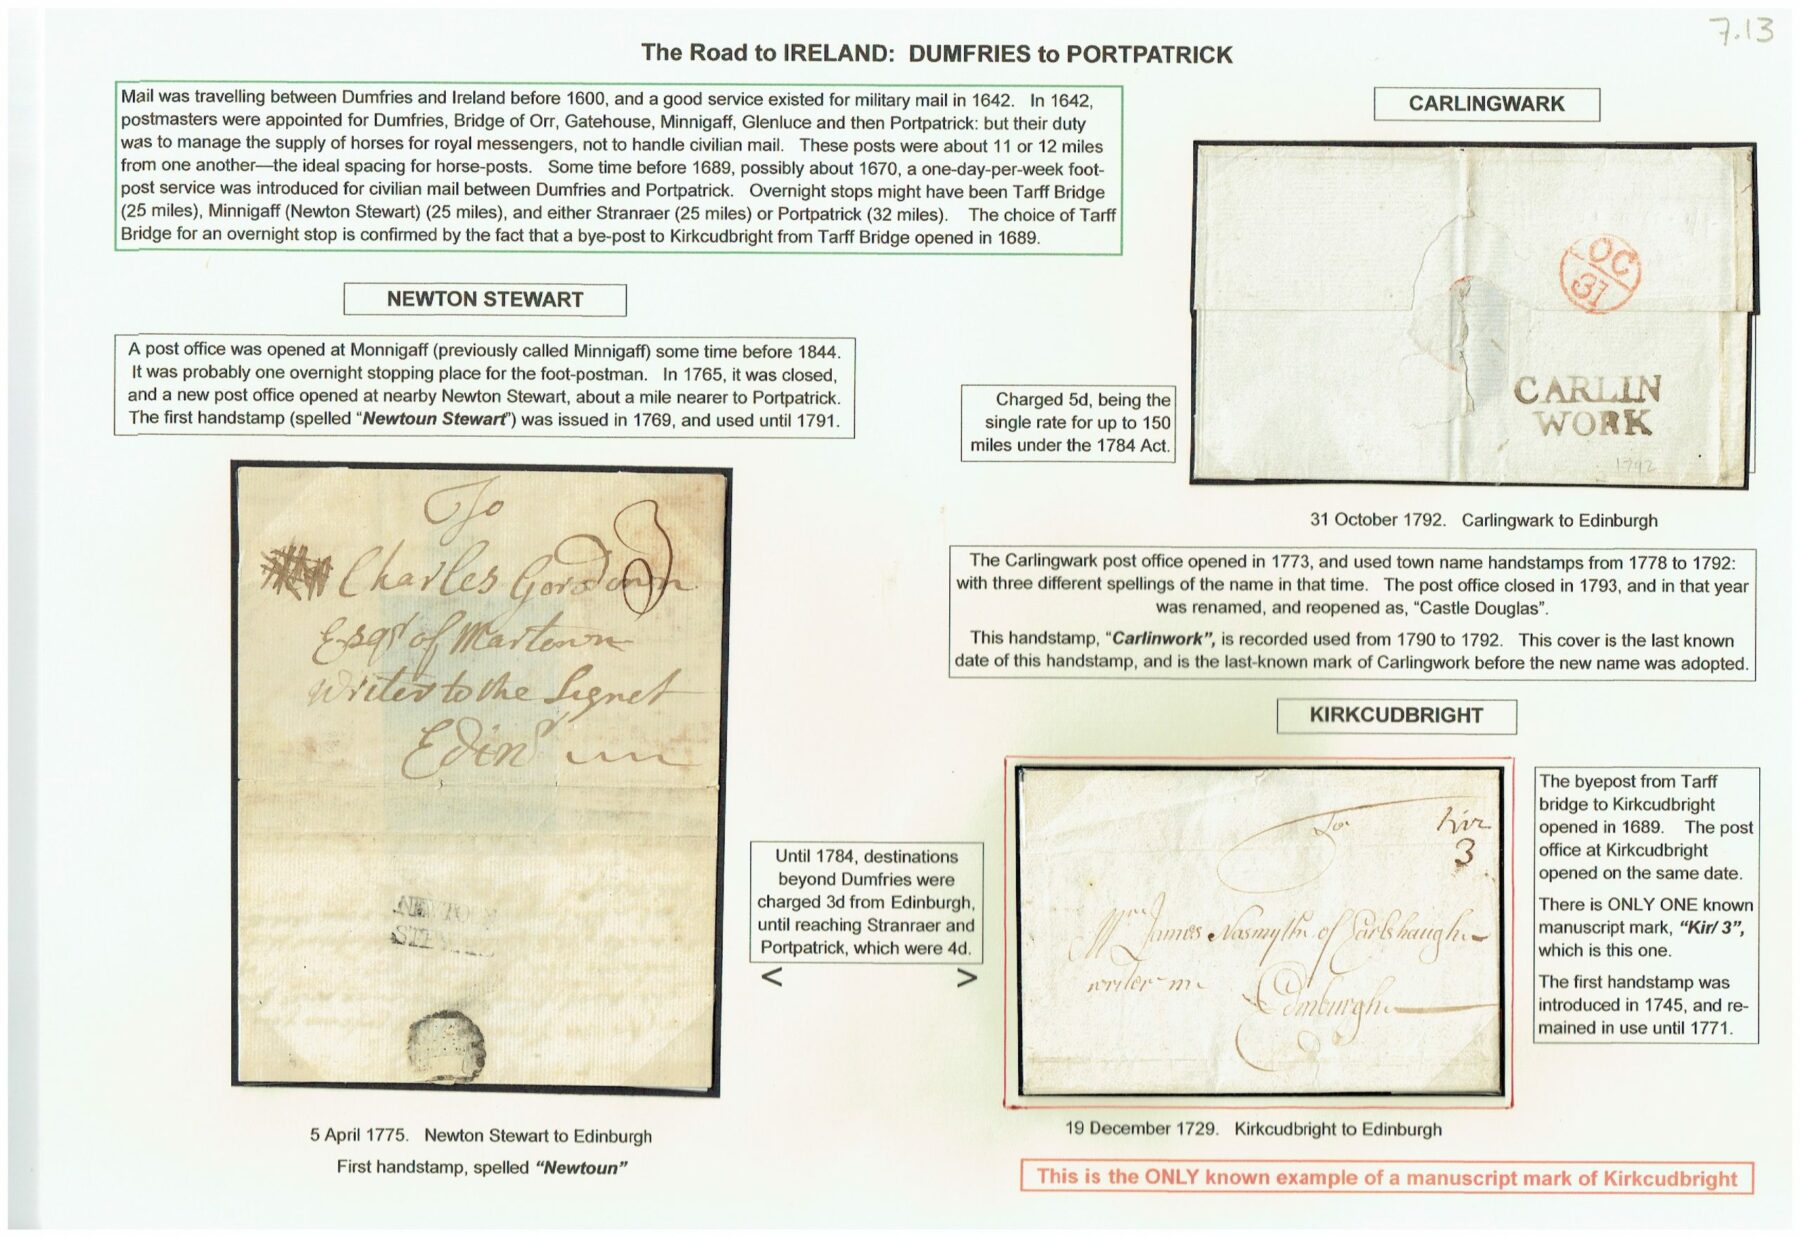 7.13
The Road to IRELAND: DUMFRIES to PORTPATRICK
Mail was travelling between Dumfries and Ireland before 1600, and a good service existed for military mail in 1642. In 1642,
postmasters were appointed for Dumfries, Bridge of Orr, Gatehouse, Minnigaff, Glenluce and then Portpatrick: but their duty
was to manage the supply of horses for royal messengers, not to handle civilian mail. These posts were about 11 or 12 miles
from one another—the ideal spacing for horse-posts. Some time before 1689, possibly about 1670, a one-day-per-week foot-
post service was introduced for civilian mail between Dumfries and Portpatrick. Overnight stops might have been Tarff Bridge
(25 miles), Minnigaff (Newton Stewart) (25 miles), and either Stranraer (25 miles) or Portpatrick (32 miles). The choice of Tarff
Bridge for an overnight stop is confirmed by the fact that a bye-post to Kirkcudbright from Tarff Bridge opened in 1689.
NEWTON STEWART
A post office was opened at Monnigaff (previously called Minnigaff) some time before 1844.
It was probably one overnight stopping place for the foot-postman. In 1765, it was closed,
and a new post office opened at nearby Newton Stewart, about a mile nearer to Portpatrick.
The first handstamp (spelled "Newtoun Stewart") was issued in 1769, and used until 1791.
To
Charles Gordon
Esqr of
Writer to the Signet
Edinr
NEWTOUN
5 April 1775. Newton Stewart to Edinburgh
First handstamp, spelled "Newtoun"
Until 1784, destinations
beyond Dumfries were
charged 3d from Edinburgh,
until reaching Stranraer and
Portpatrick, which were 4d.
< >
CARLINGWARK
OC
31
CARLIN
WORK
1792
Charged 5d, being the
single rate for up to 150
miles under the 1784 Act.
31 October 1792. Carlingwark to Edinburgh
The Carlingwark post office opened in 1773, and used town name handstamps from 1778 to 1792:
with three different spellings of the name in that time. The post office closed in 1793, and in that year
was renamed, and reopened as, "Castle Douglas".
This handstamp, "Carlinwork", is recorded used from 1790 to 1792. This cover is the last known
date of this handstamp, and is the last-known mark of Carlingwork before the new name was adopted.
KIRKCUDBRIGHT
To
Kir
3
Mr James Nasmyth of
writer in
Edinburgh
The byepost from Tarff
bridge to Kirkcudbright
opened in 1689. The post
office at Kirkcudbright
opened on the same date.
There is ONLY ONE known
manuscript mark, "Kir/ 3",
which is this one.
The first handstamp was
introduced in 1745, and re-
mained in use until 1771.
19 December 1729. Kirkcudbright to Edinburgh
This is the ONLY known example of a manuscript mark of Kirkcudbright